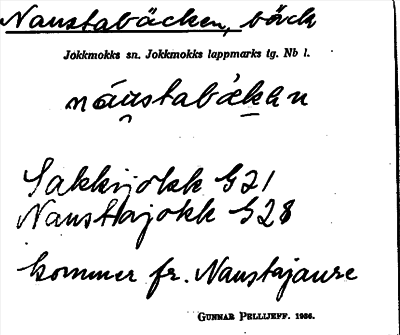 Naustabäcken, bäck
Jokkmokks sn. Jokkmokks lappmarks tg. Nb l.
náustabäkan
Sakkijokk G21
Naustajokk G28
kommer fr. Naustajaure
GUNNAR PELLIJEFF. 1956.